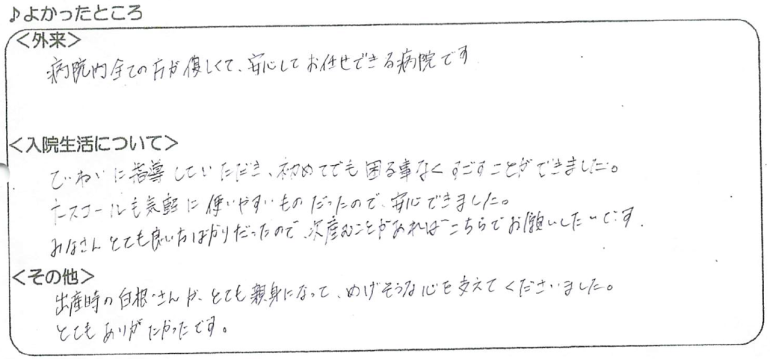 ♪よかったところ
＜外来＞
病院内全ての方が優しくて、安心してお任せできる病院です
＜入院生活について＞
ていねいに指導していただき、初めてでも困る事なくすごすことができました。
ナースコールも気軽に使いやすいものだったので、安心できました。
みなさんとても良い方ばかりだったので、次産むことがあればこちらでお願いしたいです。
＜その他＞
出産時の白根さんが、とても親身になって、めげそうな心を支えてくださいました。
とてもありがたかったです。